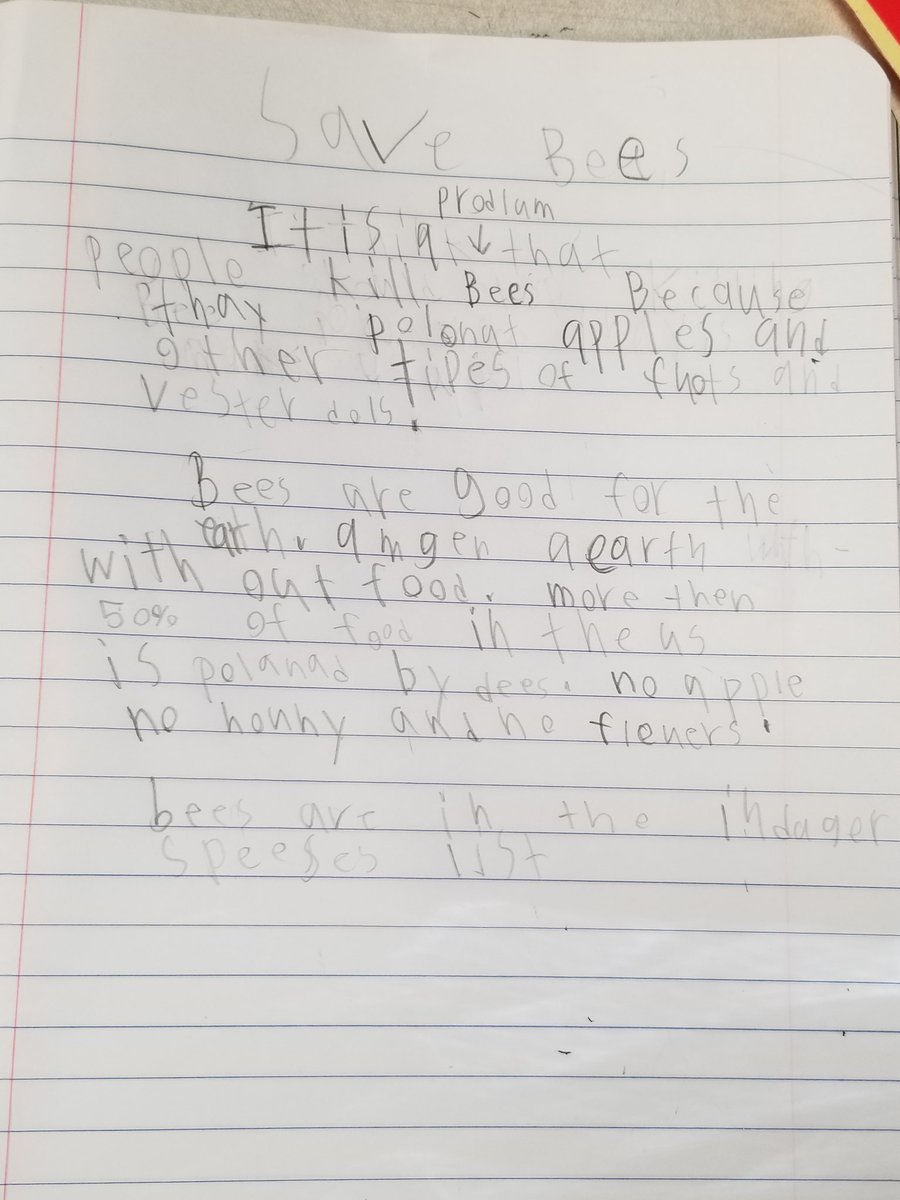 Save Bees
prodlum
It is a ↓ that
people kill Bees Because
thay polonat apples and
other tipes of fhots and
vester dols.
Bees are good for the
earth. amgen a earth
with out food. more then
50% of food in the us
is polanad by dees. no apple
no honny and no flewers.
bees are in the indager
speeses list